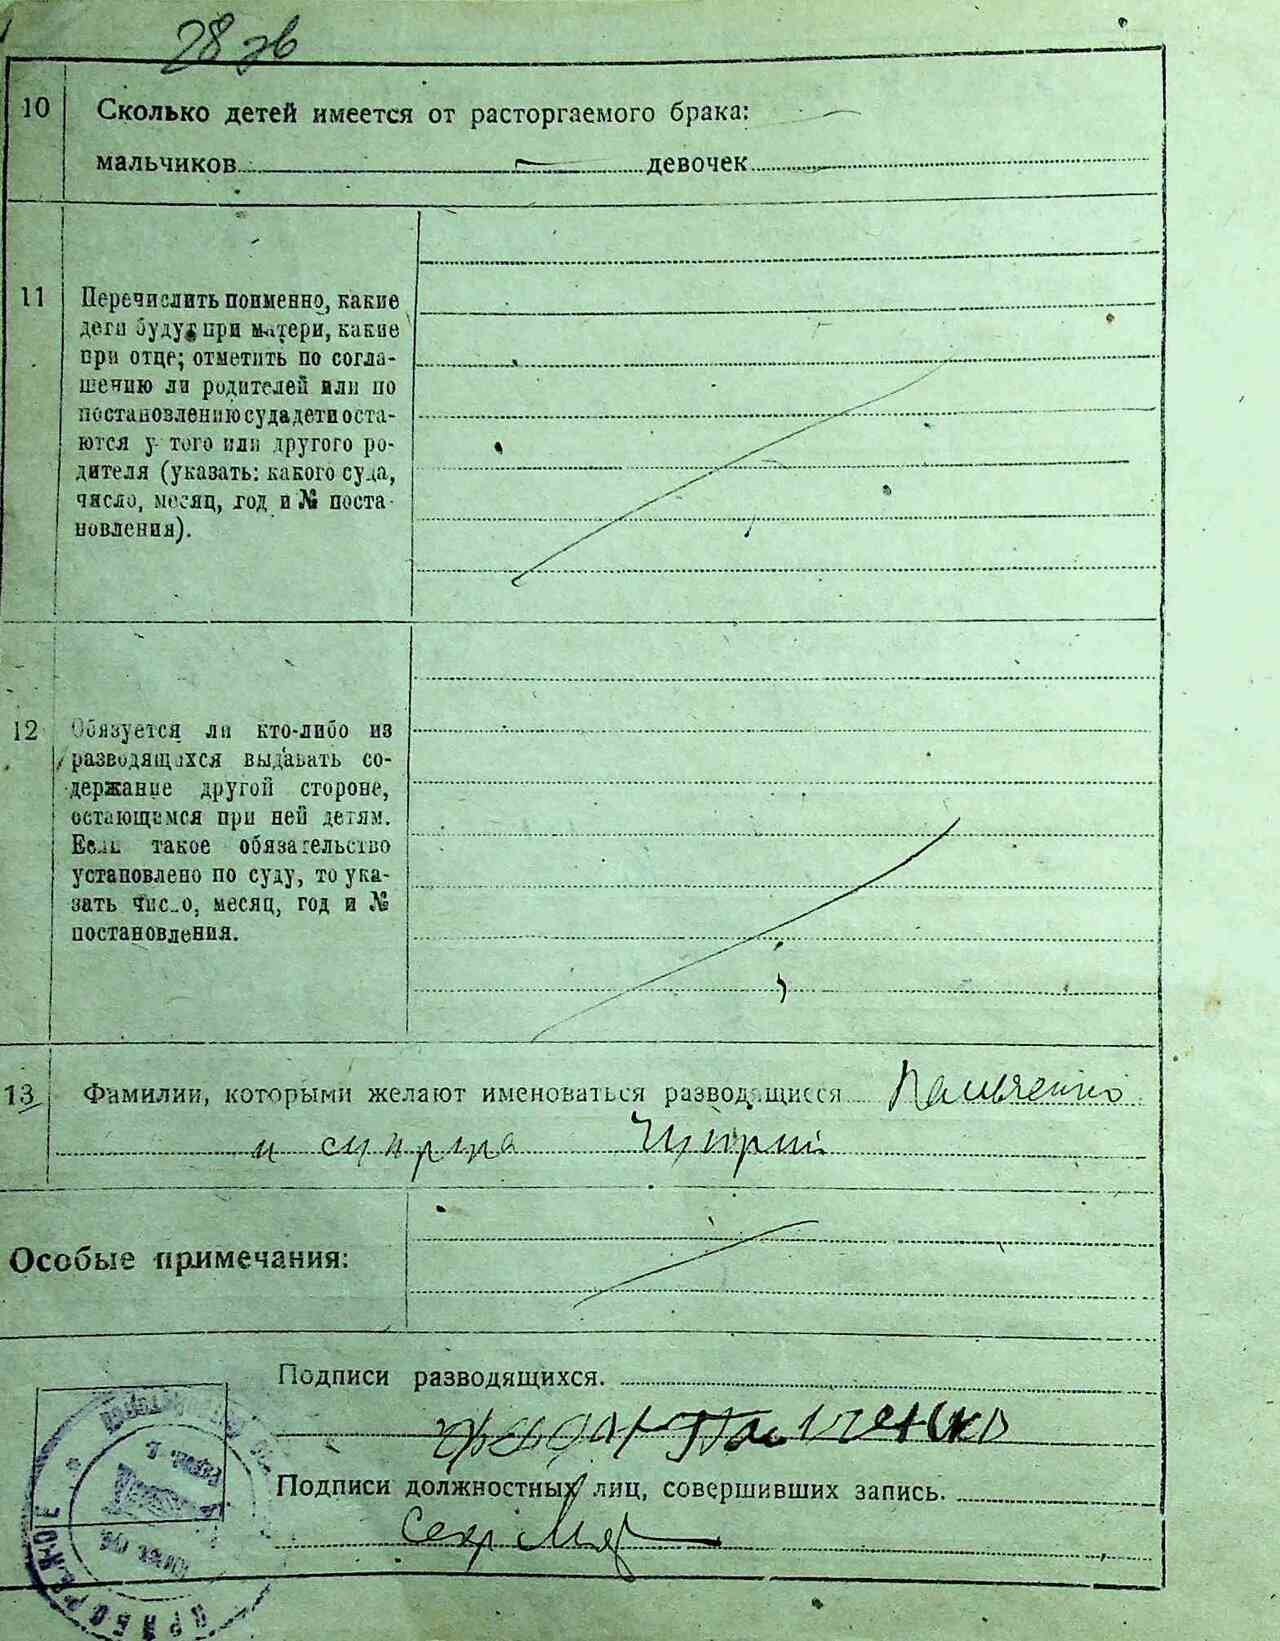 28 зв
10 Сколько детей имеется от расторгаемого брака:
мальчиков — девочек
11 Перечислить поименно, какие
дети будут при матери, какие
при отце; отметить по согла-
шению ли родителей или по
постановлению суда дети оста-
ются у того или другого ро-
дителя (указать: какого суда,
число, месяц, год и № поста-
новления).
12 Обязуется ли кто-либо из
разводящихся выдавать со-
держание другой стороне,
остающимся при ней детям.
Если такое обязательство
установлено по суду, то ука-
зать число, месяц, год и №
постановления.
13 Фамилии, которыми желают именоваться разводящиеся Пальченко
и
Особые примечания:
Подписи разводящихся.
Пальченко
Подписи должностных лиц, совершивших запись.
Секр